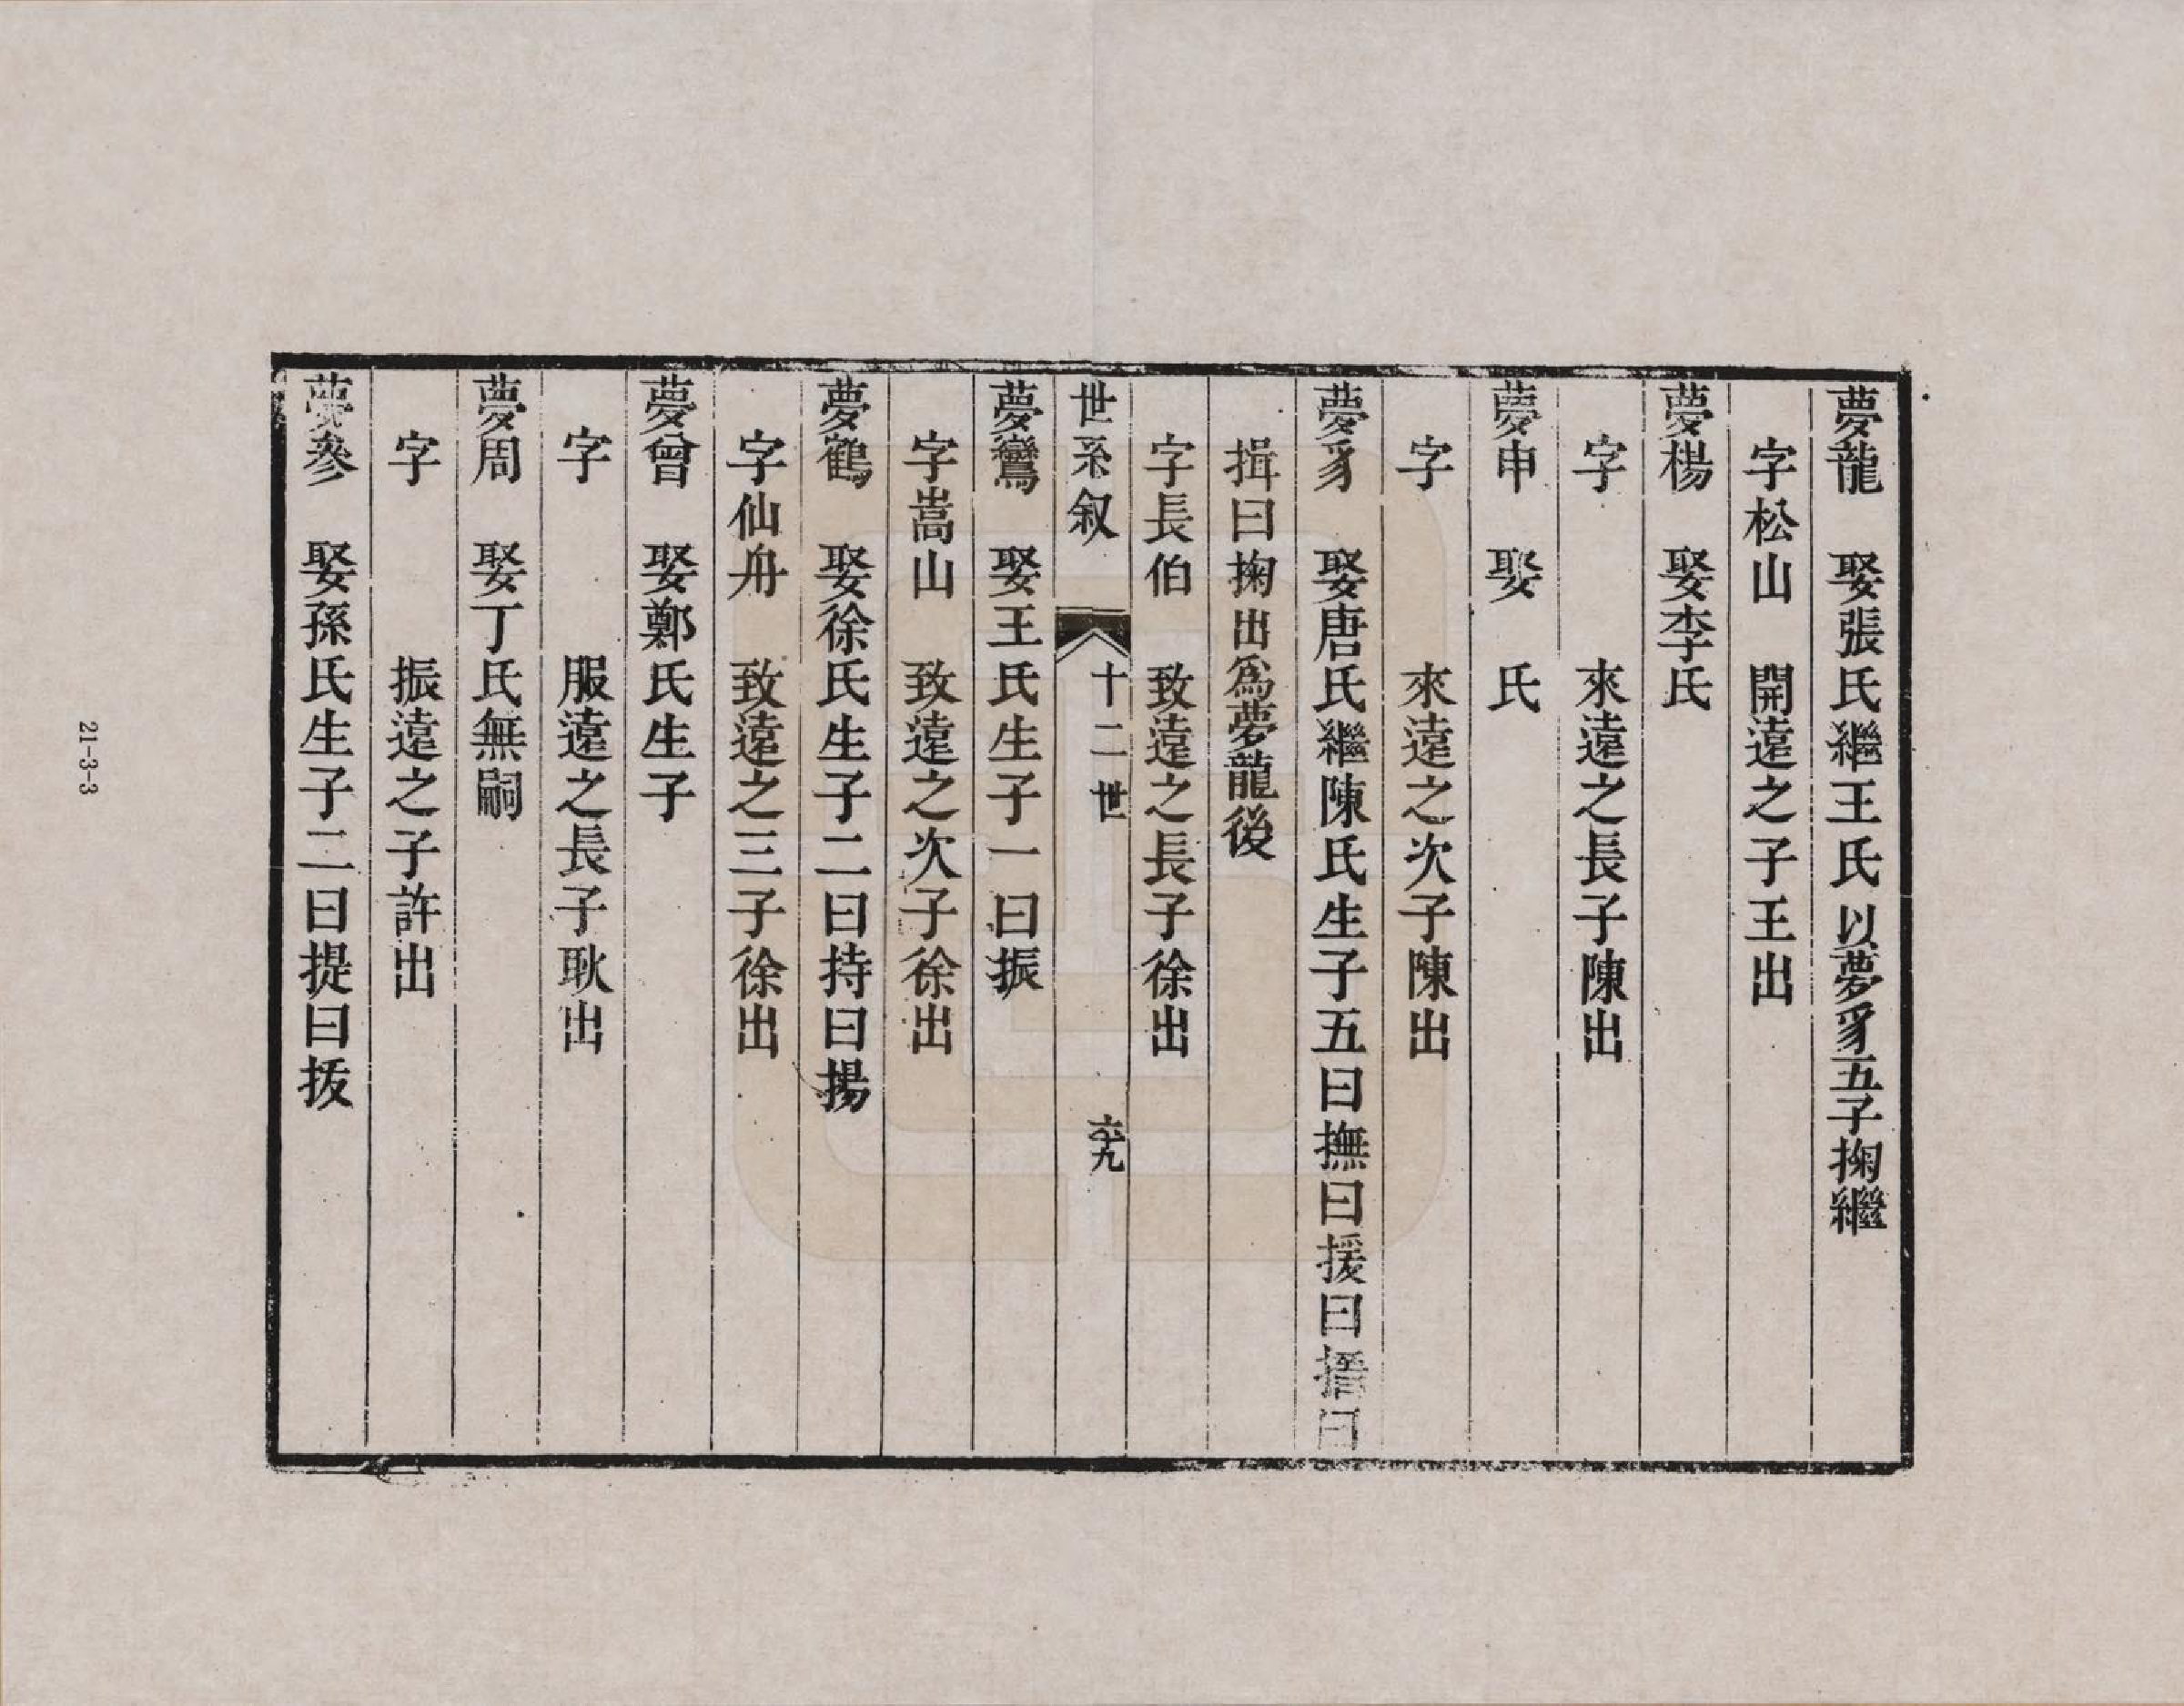 夢龍　娶張氏繼王氏以夢豸五子掬繼
字松山　開遠之子王出
夢楊　娶李氏
字　來遠之長子陳出
夢申　娶　氏
字　來遠之次子陳出
夢豸　娶唐氏繼陳氏生子五曰撫曰援曰搢曰
揖曰掬出爲夢龍後
字長伯　致遠之長子徐出
世系叙　十二世　六十九
夢鸞　娶王氏生子一曰振
字嵩山　致遠之次子徐出
夢鶴　娶徐氏生子二曰持曰揚
字仙舟　致遠之三子徐出
夢曾　娶鄭氏生子
字　服遠之長子耿出
夢周　娶丁氏無嗣
字　振遠之子許出
夢參　娶孫氏生子二曰提曰拔
21-3-3